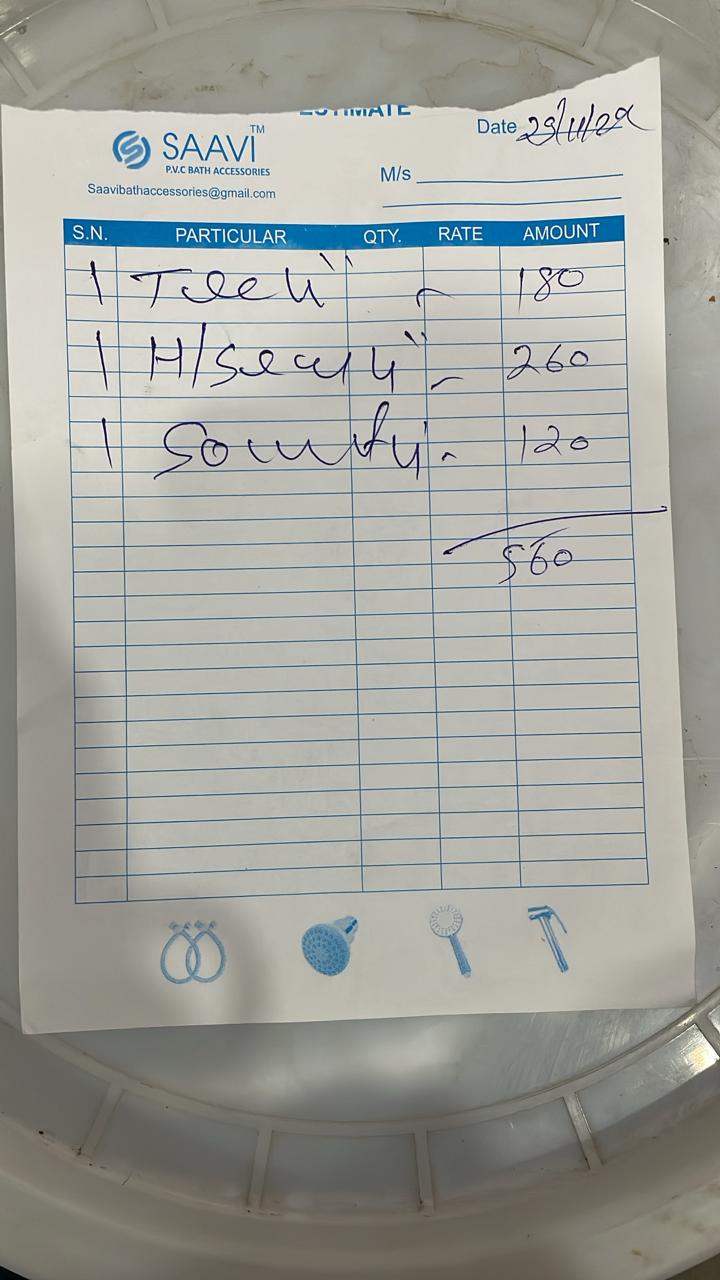 ESTIMATE
SAAVI™
P.V.C BATH ACCESSORIES
Saavibathaccessories@gmail.com
Date
M/s
S.N. PARTICULAR QTY. RATE AMOUNT
1 180
1 260
1 120
560